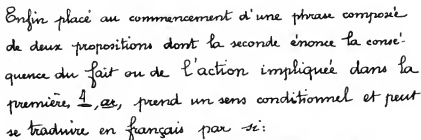 Enfin placé au commencement d'une phrase composée
de deux propositions dont la seconde énonce la consé-
quence du fait ou de l'action impliquée dans la
première, 1, as, prend un sens conditionnel et peut
se traduire en français par si: